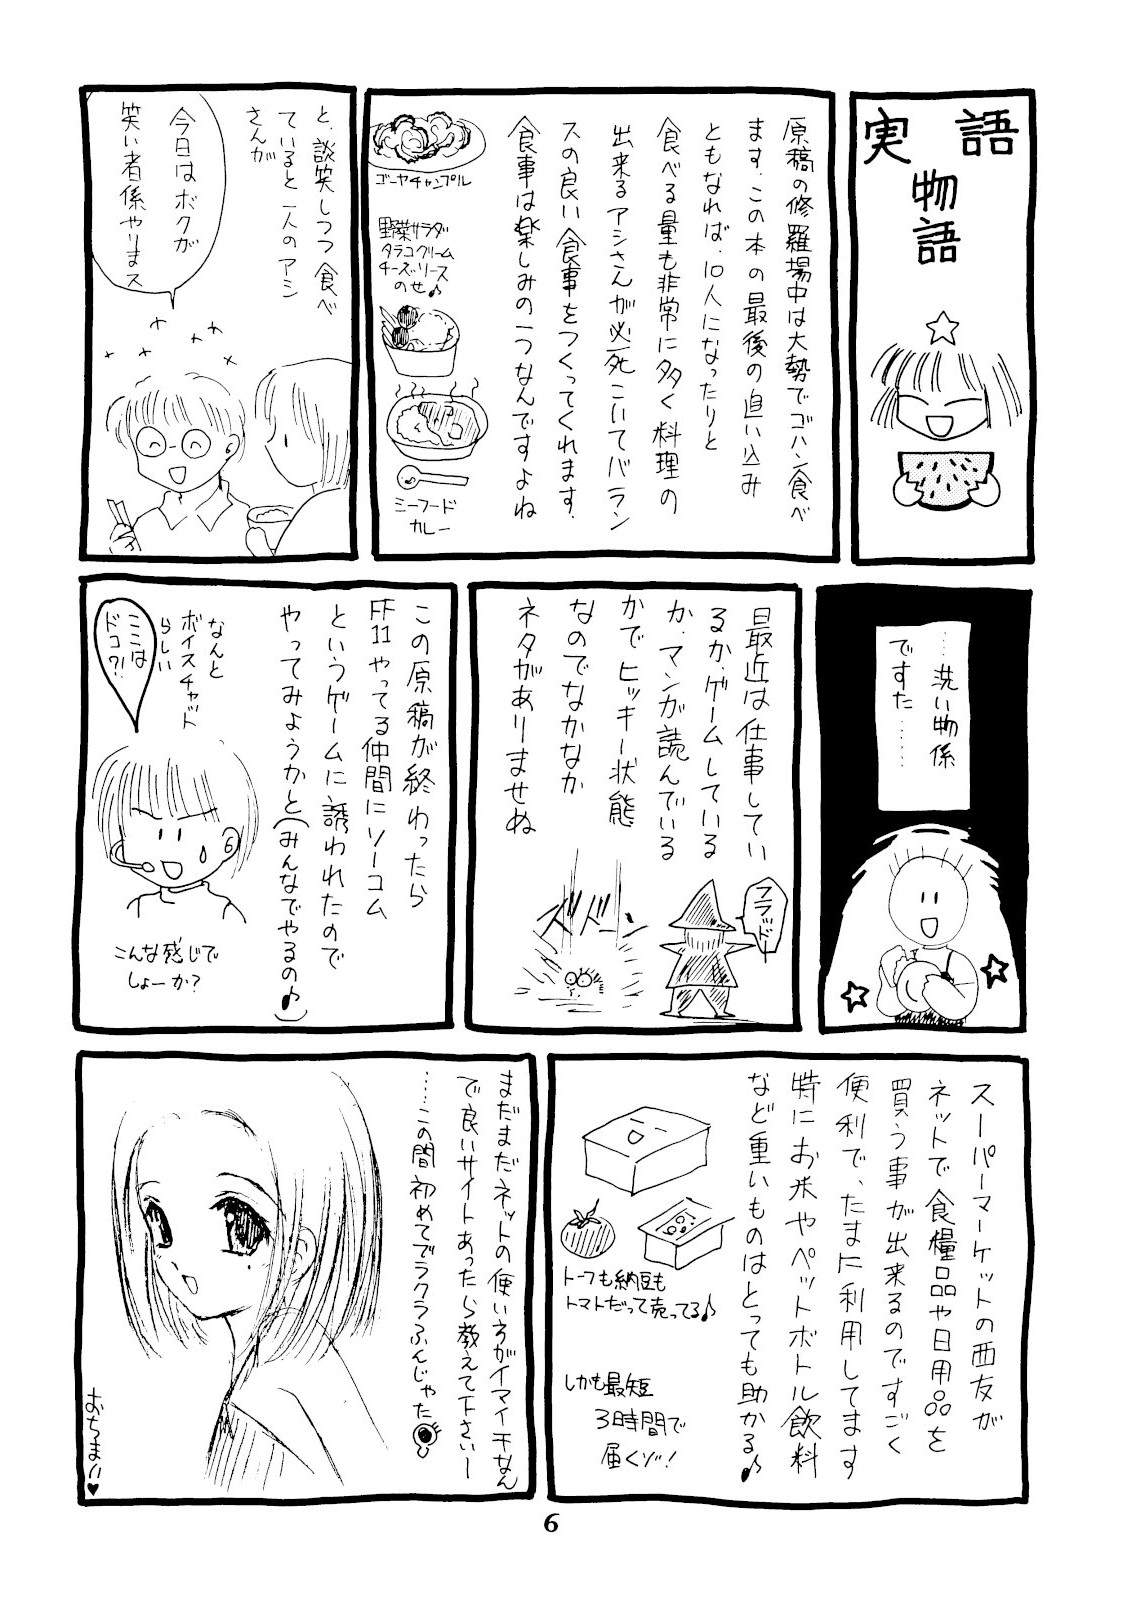 実語
物
語
原稿の修羅場中は大勢でゴハン食べ
ます。この本の最後の追い込み
ともなれば、10人になったりと
食べる量も非常に多く料理の
出来るアシさんが必死こいてバラン
スの良い食事をつくってくれます。
食事は楽しみの一つなんですよね
ゴーヤチャンプル
野菜サラダ
タラコクリーム
チーズソース
のせ♪
シーフード
カレー
と、談笑しつつ食べ
ていると一人のアシ
さんが
今日はボクが
笑い者係やりまス
…洗い物係
ですた……
最近は仕事してい
るか、ゲームしている
か、マンガ読んでいる
かでヒッキー状態
なのでなかなか
ネタがありませぬ
フラッド
ズドドーン
この原稿が終わったら
FF11やってる仲間にソーコム
というゲームに誘われたので
やってみようかと(みんなでやるの♪)
なんと
ボイスチャット
らしい
ココは
ドコ?!
こんな感じで
しょーか?
スーパーマーケットの西友が
ネットで食糧品や日用品を
買う事が出来るのですごく
便利で、たまに利用してます
特にお米やペットボトル飲料
など重いものはとっても助かる♪
トーフも納豆も
トマトだって売ってる♪
しかも最短
3時間で
届くゾ!
まだまだネットの使い方がイマイチなん
で良いサイトあったら教えて下さいー
……この間初めてでラクラふんじゃた
おちまい♥
6